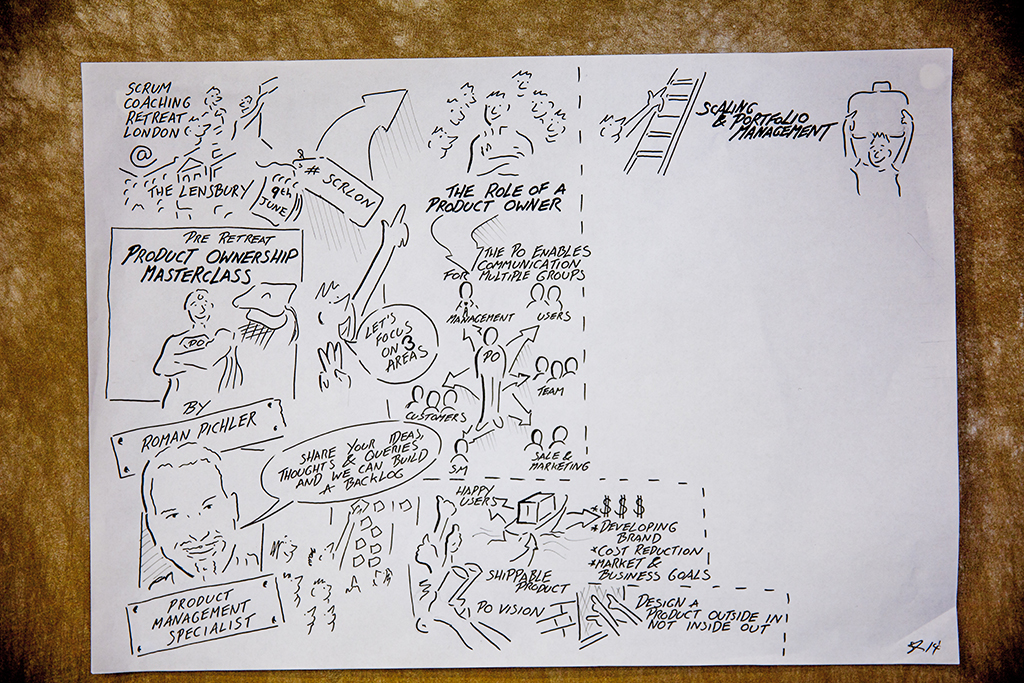 SCRUM
COACHING
RETREAT
LONDON
@
THE LENSBURY
9th
JUNE
# SCRLON
PRE RETREAT
PRODUCT OWNERSHIP
MASTERCLASS
PO
BY
ROMAN PICHLER
PRODUCT
MANAGEMENT
SPECIALIST
SHARE YOUR IDEAS,
THOUGHTS & QUERIES
AND WE CAN BUILD
A BACKLOG
LET'S
FOCUS
ON 3
AREAS
THE ROLE OF A
PRODUCT OWNER
THE PO ENABLES
COMMUNICATION
FOR MULTIPLE GROUPS
MANAGEMENT
USERS
PO
TEAM
CUSTOMERS
SM
SALE &
MARKETING
HAPPY
USERS
* $ $ $
* DEVELOPING
BRAND
* COST REDUCTION
* MARKET &
BUSINESS GOALS
SHIPPABLE
PRODUCT
PO VISION
DESIGN A
PRODUCT OUTSIDE IN
NOT INSIDE OUT
SCALING
& PORTFOLIO
MANAGEMENT
14